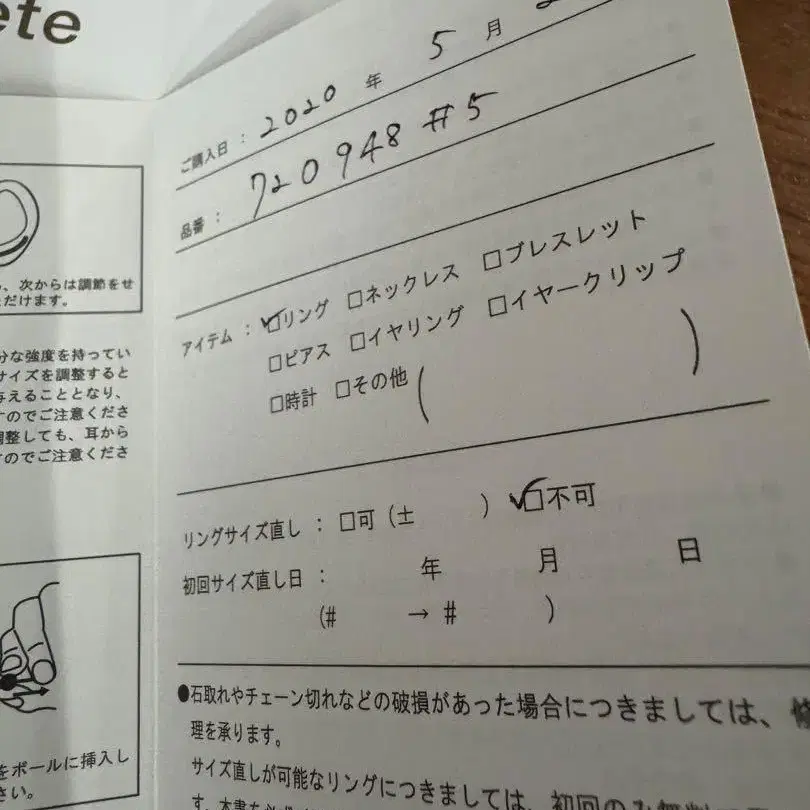 ete
、次からは調節をせ
ただけます。
分な強度を持ってい
サイズを調整すると
与えることとなり、
すのでご注意くださ
調整しても、耳から
すのでご注意くださ
をポールに挿入し
さい。
ご購入日 : 2020 年 5 月
品番 : 720948 #5
アイテム : □リング □ネックレス □ブレスレット
□ピアス □イヤリング □イヤークリップ
□時計 □その他 ( )
リングサイズ直し : □可 (± ) □不可
初回サイズ直し日 : 年 月 日
(# → # )
●石取れやチェーン切れなどの破損があった場合につきましては、修
理を承ります。
サイズ直しが可能なリングにつきましては、初回のみ無料